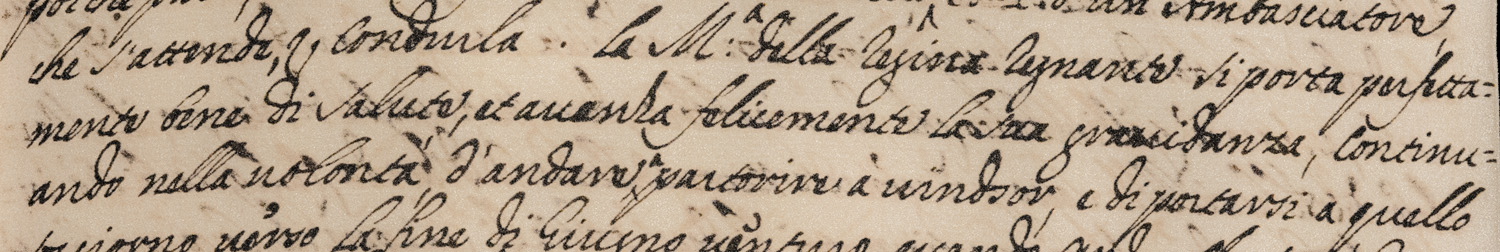 un Ambasciatore,
che s'attende, p condurla. la M:a della Regina Regnante si porta perfetta=
mente bene di salute, et auanza felicemente la sua grauidanza, continu=
ando nella uolontà, d'andare a partorire à uindsor, e di portarsi a quello
uerso la fine di Giugno uenturo, quando